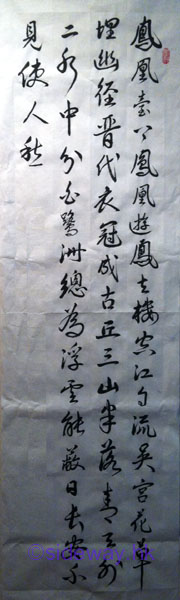 鳳凰臺上鳳凰遊鳳去樓空江自流吳宮花草
埋幽径晋代衣冠成古丘三山半落青天外
二水中分白鷺洲總為浮雲能蔽日長安不
見使人愁
©sideway.hk